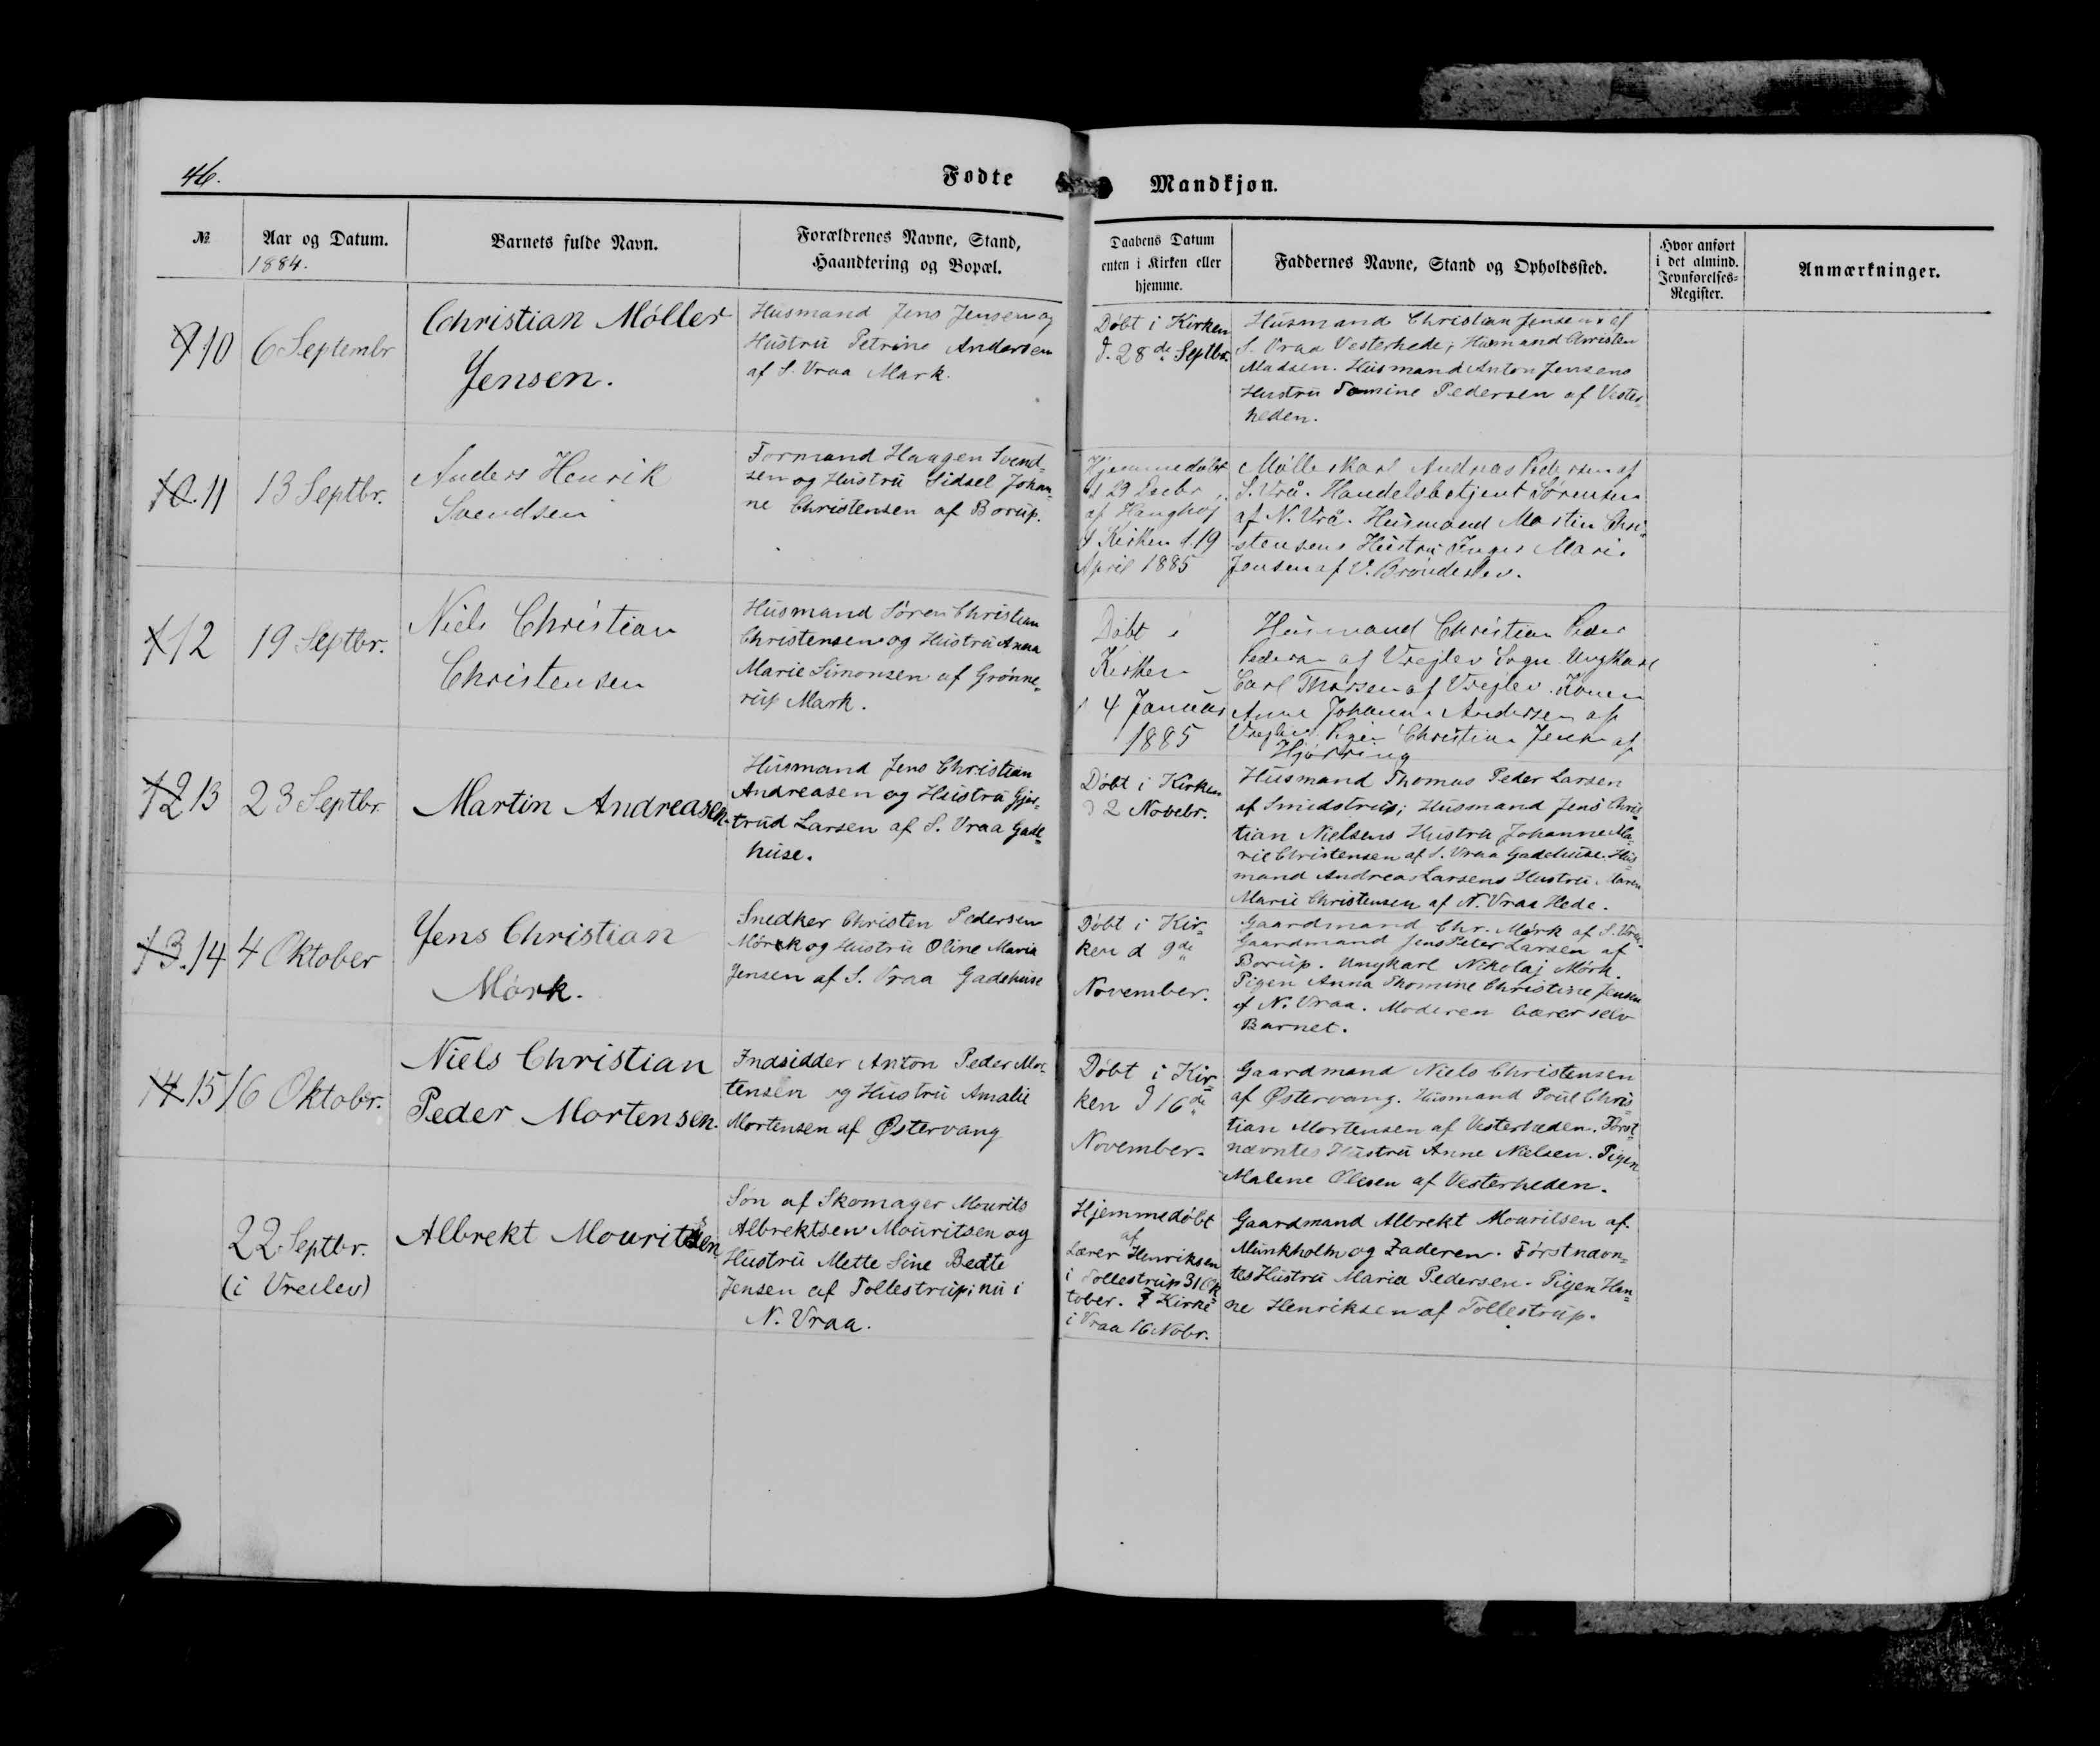 46.
Fodte
Mandkjøn.
№
Aar og Datum.
1884.
Barnets fulde Navn.
Forældrenes Navne, Stand,
Haandtering og Bopæl.
Daabens Datum
enten i Kirken eller
hjemme.
Faddernes Navne, Stand og Opholdssted.
Hvor anført
i det almind.
Jevnførelses-
Register.
Anmærkninger.
9 10
6 Septembr
Christian Møller
Jensen.
Husmand Jens Jensen og
Hustru Petrine Andersen
af S. Vraa Mark.
Døbt i Kirken
d. 28de Septbr.
Husmand Christian Jensen af
S. Vraa Vesterhede; Husmand Christen
Madsen. Husmand Anton Jensens
Hustru Pedersen af Vester=
heden.
10. 11
13 Septbr.
Anders Henrik
Svendsen
Formand Haagen Svend=
sen og Hustru Sidsel Johan=
ne Christensen af Borup.
Hjemmedøbt
d 29 Decbr
af
I Kirken d. 19
April 1885
Møllerkarl Andreas Pedersen af
S. Vrå. Handelsbetjent Sørensen
af N. Vrå. Husmand Martin Chri=
stensens Hustru Inger Marie
Jensen af V. Brønderslev.
12
19 Septbr.
Niels Christian
Christensen
Husmand Søren Christian
Christensen og Hustru Anna
Marie Simonsen af Grønne=
rup Mark.
Døbt i
Kirken
d 4 Januar
1885
Husmand Christian Peder
Pedersen af Vrejlev Sogn. Ungkarl
Carl Thorsen af Vrejlev. Konen
Anne Johanne Andersen af
Vrejlev. Pigen Christine Jensen af
Hjørring
12 13
23 Septbr.
Martin Andreasen.
Husmand Jens Christian
Andreasen og Hustru Gjer=
trud Larsen af S. Vraa Gade=
huse.
Døbt i Kirken
d 2 Novebr.
Husmand Thomas Peder Larsen
af Smidstrup; Husmand Jens Chris=
tian Nielsens Hustru Johanne Ma=
rie Christensen af S. Vraa Gadehuse. Hus=
mand Andreas Larsens Hustru Maren
Marie Christensen af N. Vraa Hede.
13. 14
4 Oktober
Jens Christian
Mørk.
Snedker Christen Pedersen
Mørk og Hustru Oline Marie
Jensen af S. Vraa Gadehuse
Døbt i Kir=
ken d 9de
November.
Gaardmand Chr. Mørk af S. Vraa.
Gaardmand Jens Peter Larsen af
Borup. Ungkarl Nikolaj Mørk.
Pigen Anna Thomine Christine Jensen
af N. Vraa. Moderen bærer selv
Barnet.
14. 15
16 Oktobr.
Niels Christian
Peder Mortensen.
Indsidder Anton Peder Mor=
tensen og Hustru Amalie
Mortensen af Østervang
Døbt i Kir=
ken d 16de
November.
Gaardmand Niels Christensen
af Østervang. Husmand Poul Chris=
tian Mortensen af Vesterheden. Først=
nævntes Hustru Anne Nielsen. Pigen
Malene Olesen af Vesterheden.
22 Septbr.
(i Vreilev)
Albrekt Mouritsen
Søn af Skomager Mourits
Albrektsen Mouritsen og
Hustru Mette Sine Bedte
Jensen af Tollestrup; nu i
N. Vraa.
Hjemmedøbt
af
Lærer Henriksen
i Tollestrup 31 Ok=
tober. I Kirke
i Vraa 16 Nobr.
Gaardmand Albrekt Mouritsen af
Munkholm og Faderen. Førstnævn=
tes Hustru Maria Pedersen. Pigen Han=
ne Henriksen af Tollestrup.